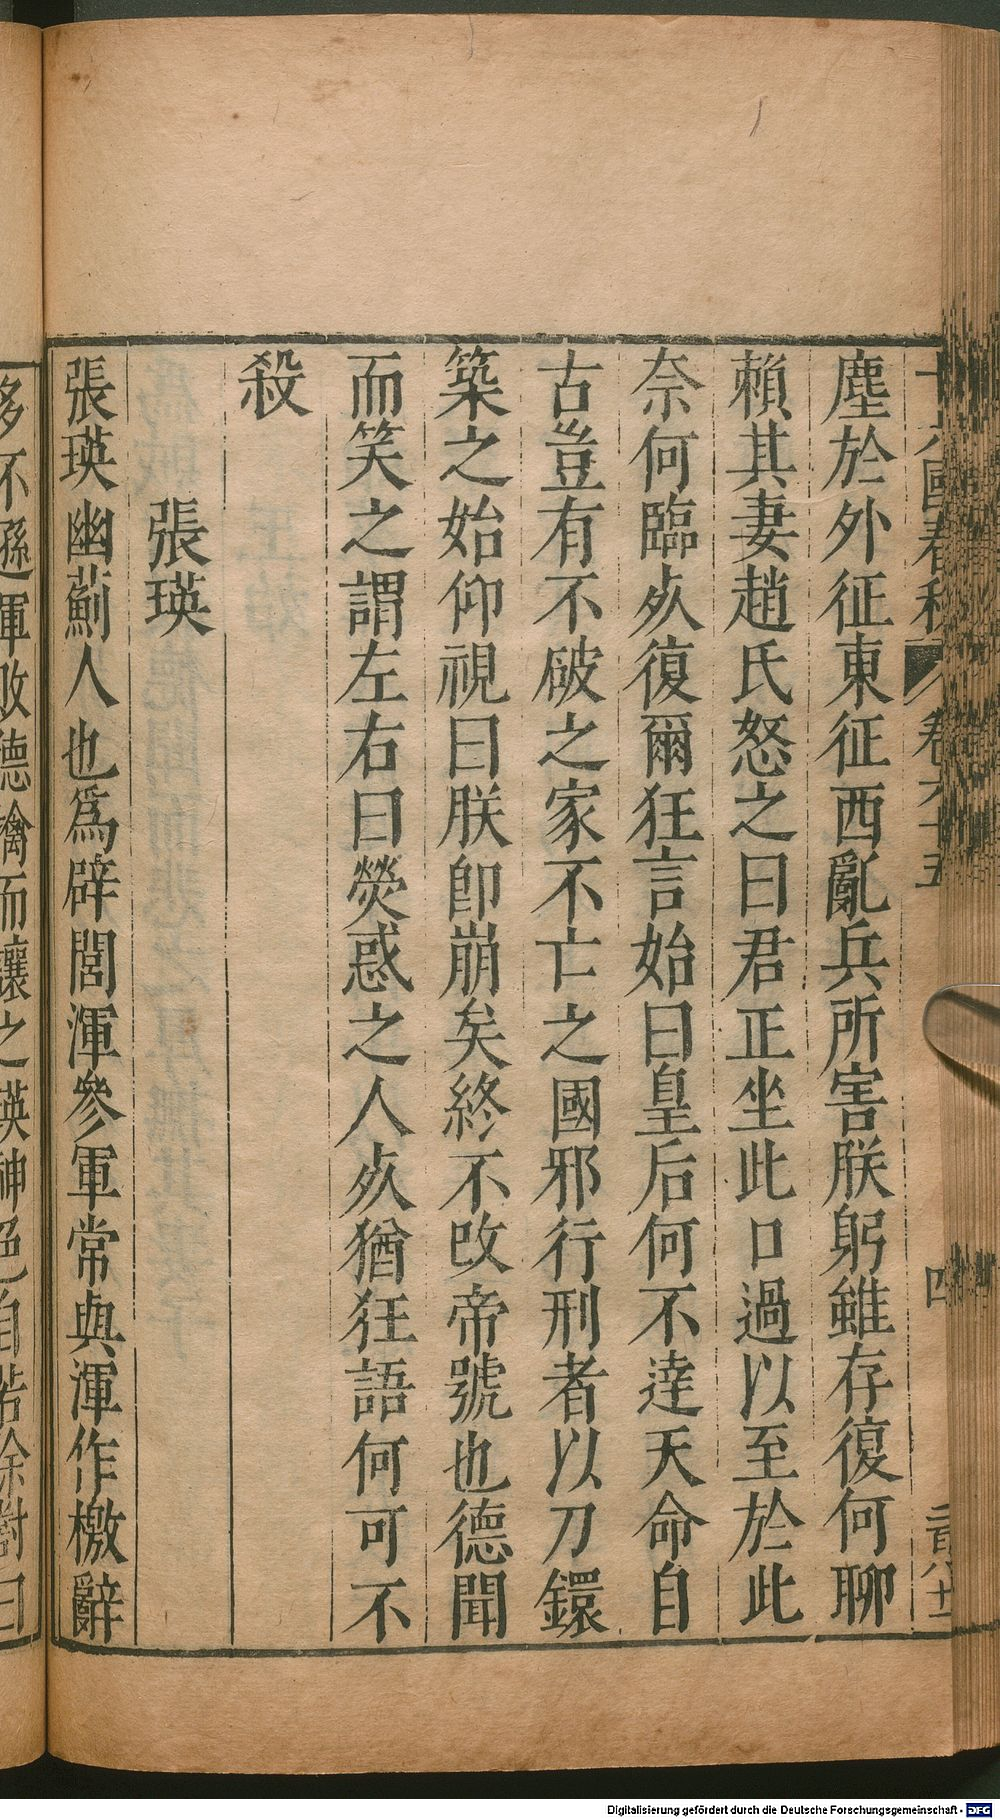 十六國春秋 卷六十五 四
塵於外征東征西亂兵所害朕躬雖存復何聊
賴其妻趙氏怒之曰君正坐此口過以至於此
奈何臨㱙復爾狂言始曰皇后何不達天命自
古豈有不破之家不亡之國邪行刑者以刀鐶
築之始仰視曰朕卽崩矣終不改帝號也德聞
而笑之謂左右曰熒惑之人㱙猶狂語何可不
殺
張瑛
張瑛幽薊人也爲辟閭渾參軍常與渾作檄辭
多不遜渾敗德擒而讓之瑛神色自若徐對曰
Digitalisierung gefördert durch die Deutsche Forschungsgemeinschaft - DFG